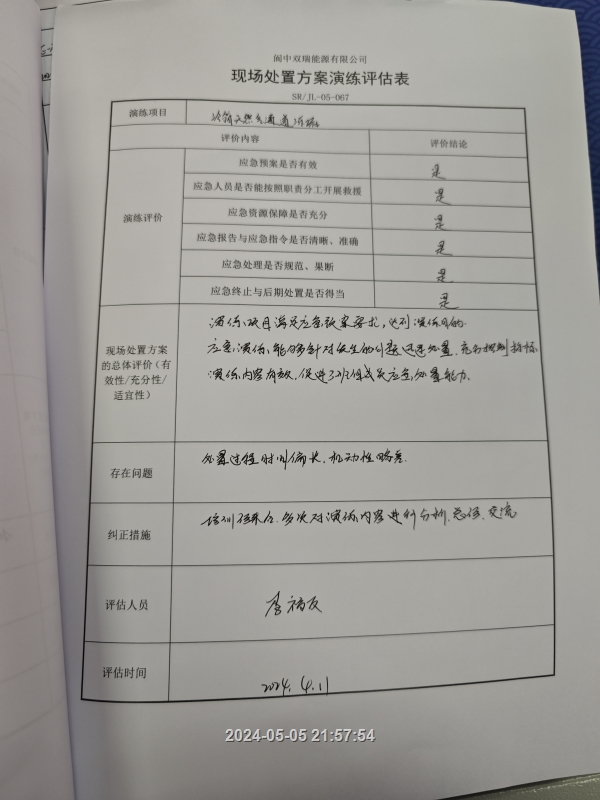 阆中双瑞能源有限公司
现场处置方案演练评估表
SR/JL-05-067
演练项目
评价内容 评价结论
演练评价
应急预案是否有效 是
应急人员是否能按照职责分工开展救援 是
应急资源保障是否充分 是
应急报告与应急指令是否清晰、准确 是
应急处理是否规范、果断 是
应急终止与后期处置是否得当 是
现场处置方案的总体评价(有效性/充分性/适宜性)
演练项目满足应急预案要求,达到演练目的
应急演练能够针对发生的问题迅速处置,充分
演练内容有效,促进了班组成员应急处置能力.
存在问题
处置过程时间偏长,机动性略差.
纠正措施
培训结束后,多次对演练内容进行分析、总结、交流
评估人员
评估时间
2024.4.11
2024-05-05 21:57:54